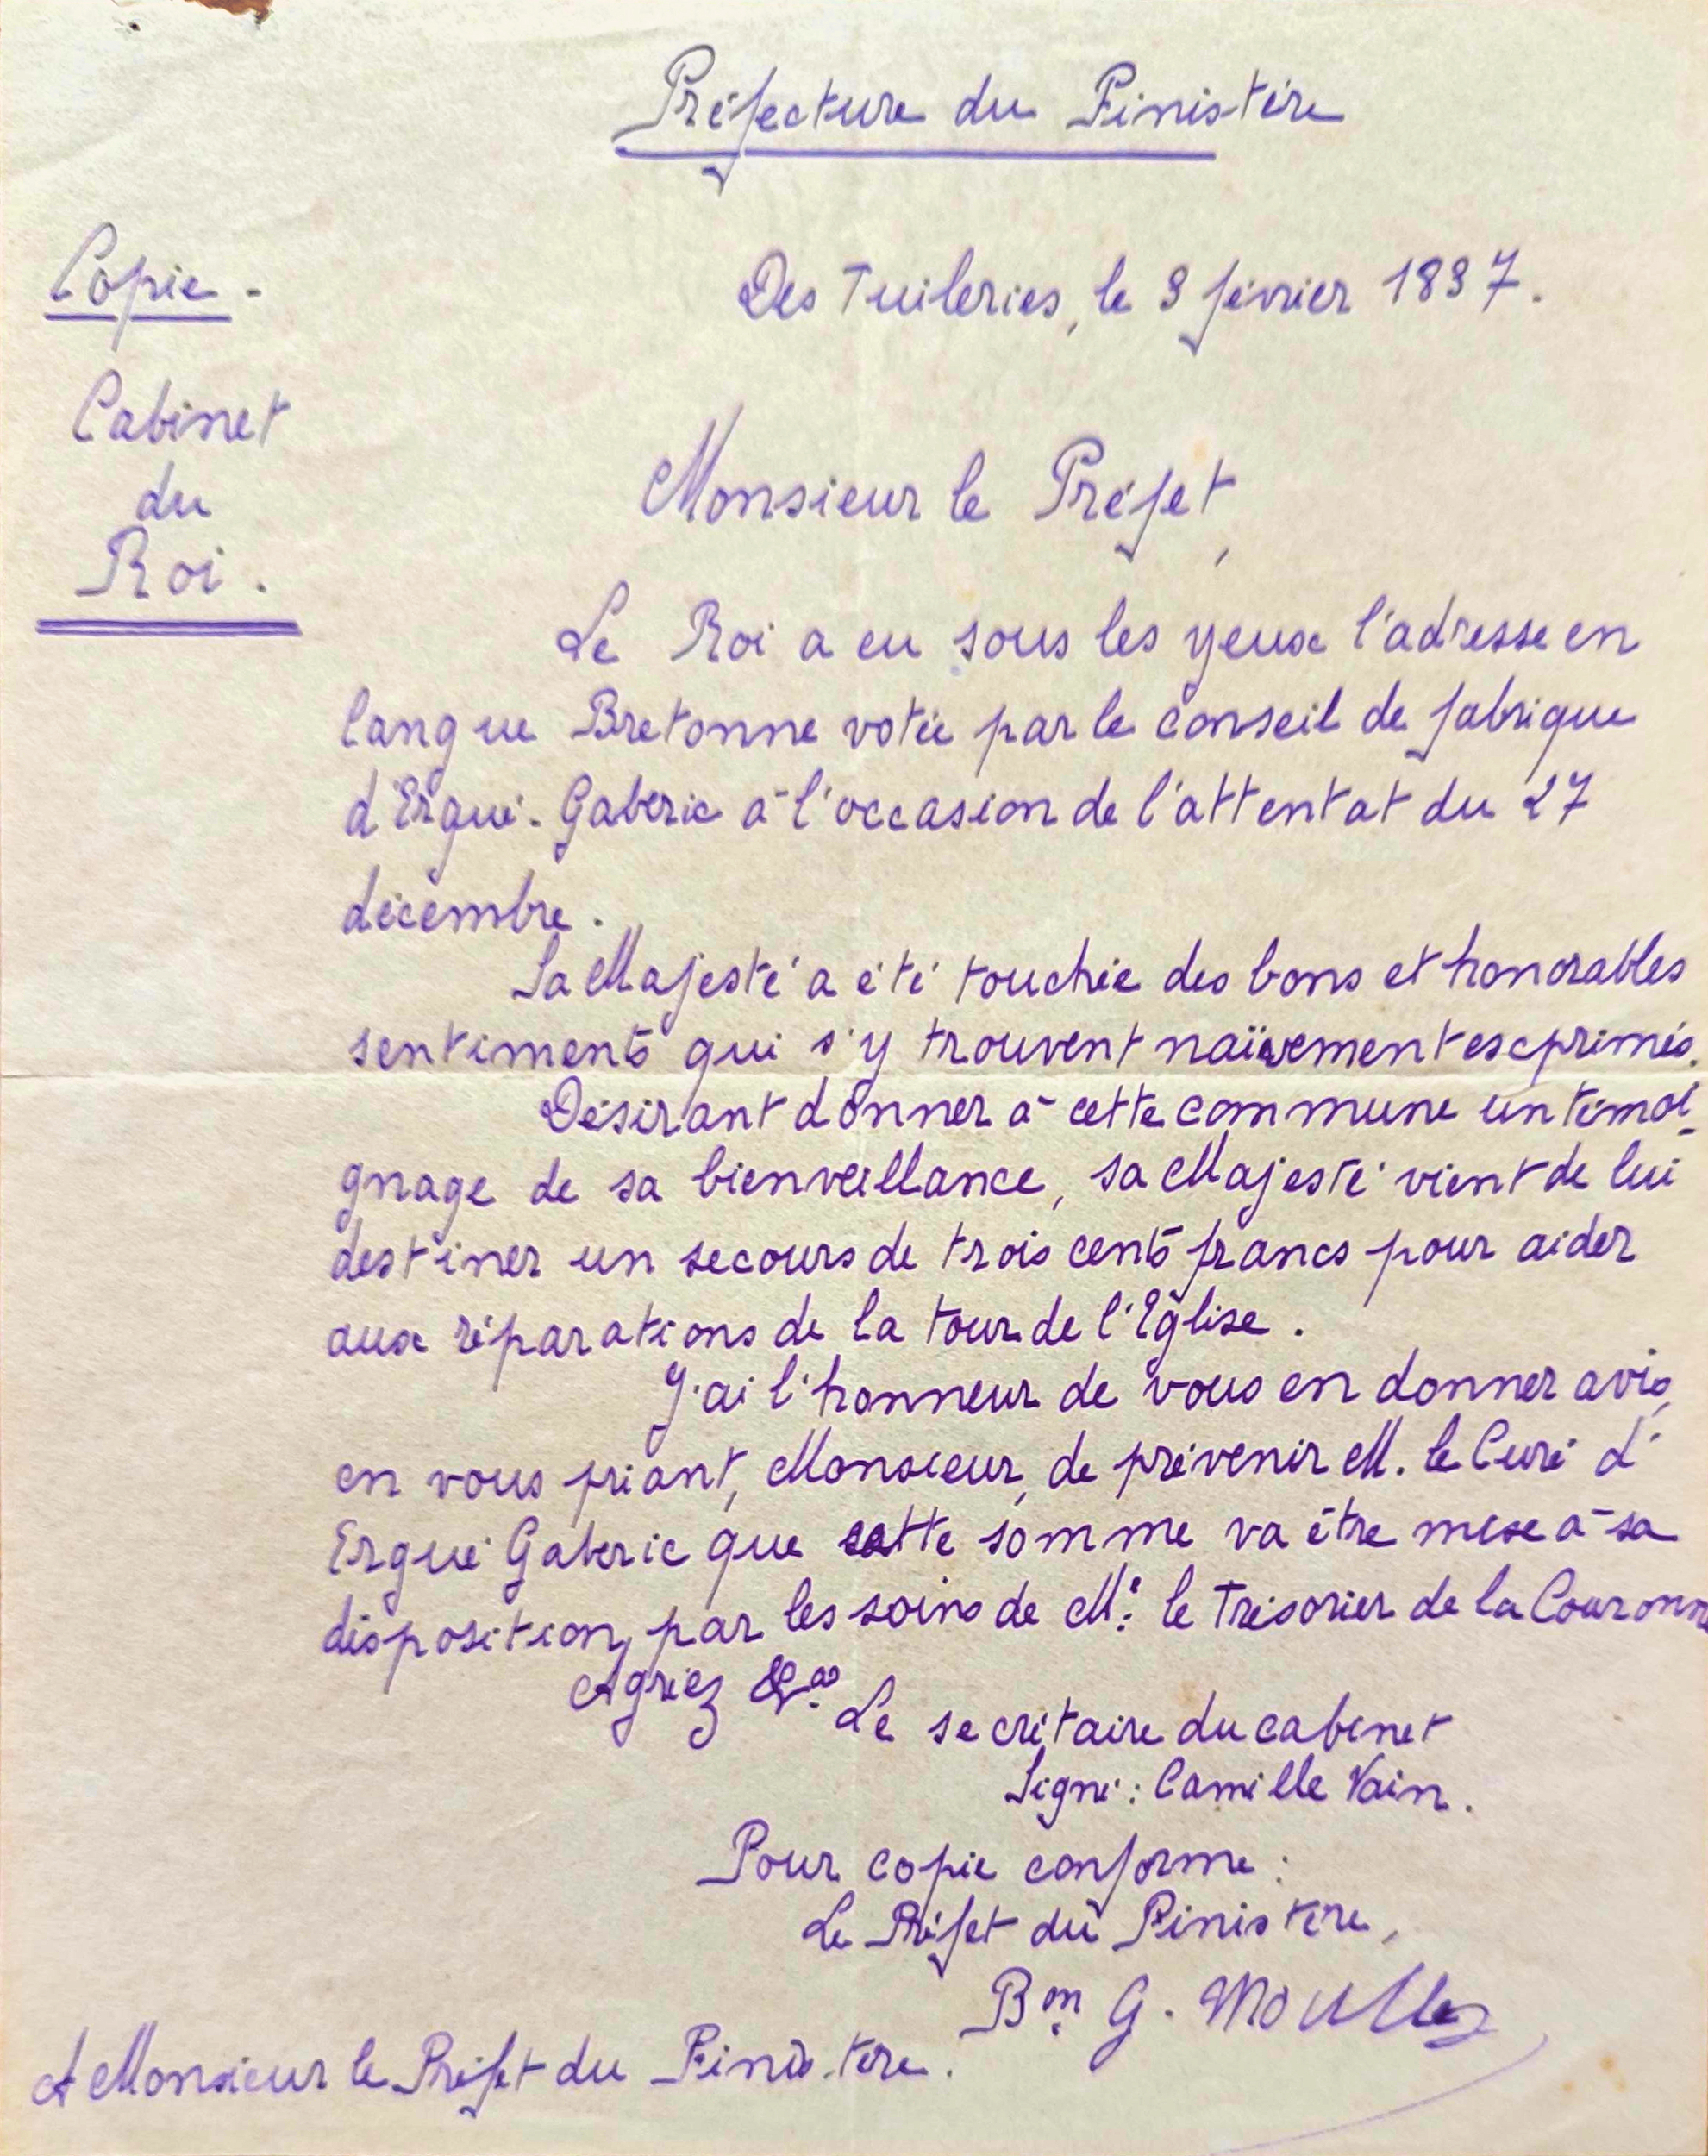 Préfecture du Finistère
Copie -
Des Tuileries, le 3 février 1837.
Cabinet
du
Roi.
Monsieur le Préfet,
Le Roi a eu sous les yeux l'adresse en
langue Bretonne votée par le conseil de fabrique
d'Ergué-Gabéric à l'occasion de l'attentat du 27
décembre.
Sa Majesté a été touchée des bons et honorables
sentiments qui s'y trouvent naïvement exprimés.
Désirant donner à cette commune un témoi-
gnage de sa bienveillance, sa Majesté vient de lui
destiner un secours de trois cents francs pour aider
aux réparations de la tour de l'Eglise.
J'ai l'honneur de vous en donner avis,
en vous priant, Monsieur, de prévenir M. le Curé d'
Ergué Gabéric que cette somme va être mise à sa
disposition, par les soins de M. le Trésorier de la Couronne
Agréez &a
Le secrétaire du cabinet
Signé: Camille Vain.
Pour copie conforme:
Le Préfet du Finistère,
Bon G. Moullez
A Monsieur le Préfet du Finistère.